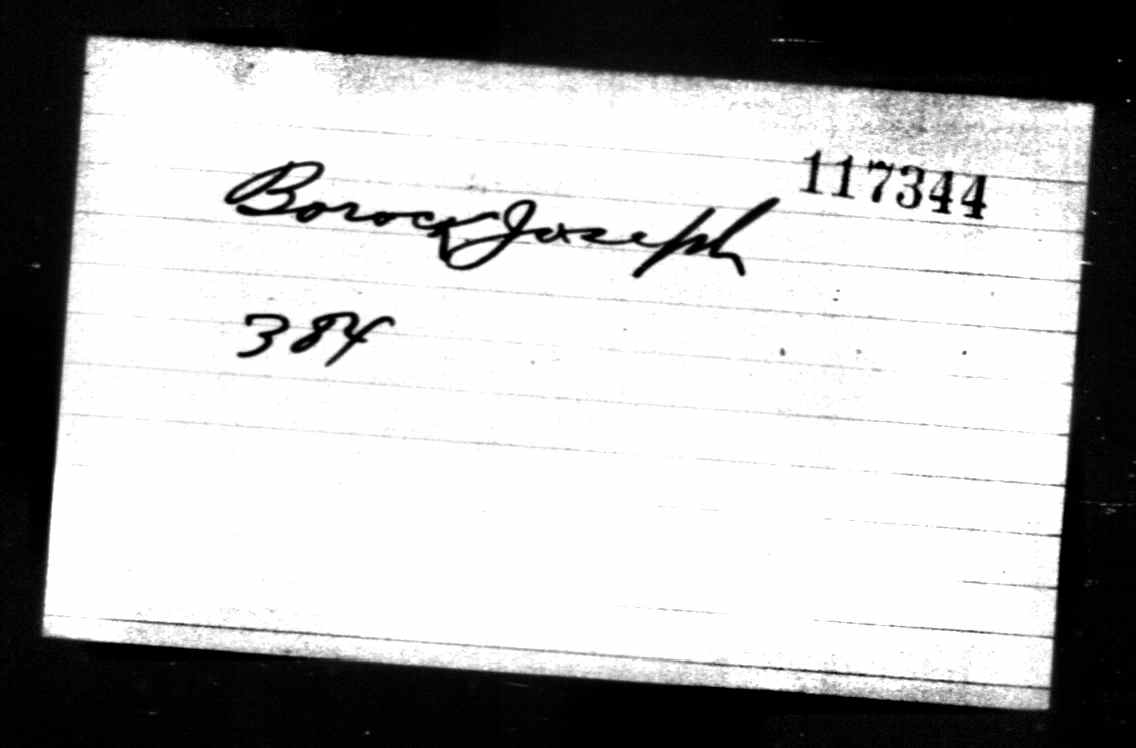 117344
Borock Joseph
384